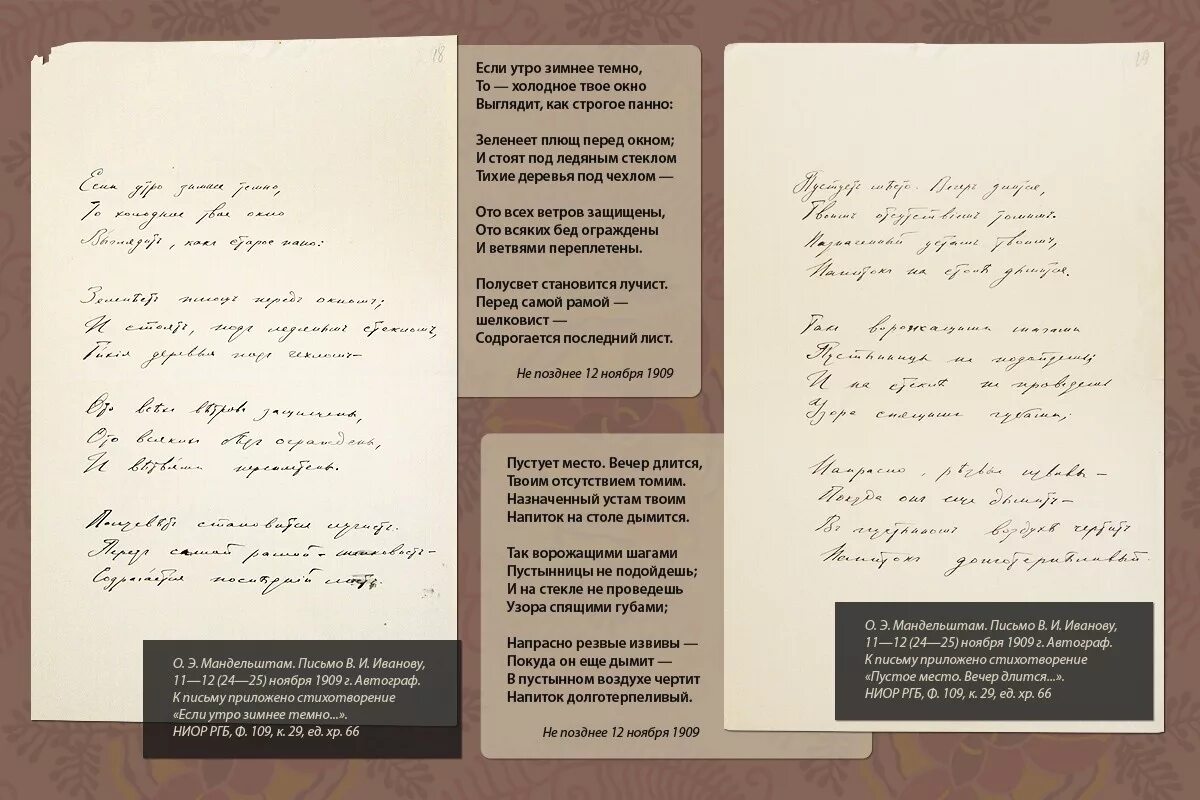 18
Если утро зимнее темно,
То холодное твое окно
Выглядитъ, какъ старое пано:
Зеленѣетъ плющъ передъ окномъ;
И стоятъ, подъ ледянымъ стекломъ,
Тихія деревья подъ чехломъ —
Ото всѣхъ вѣтровъ защищены,
Ото всякихъ бѣдъ ограждены,
И вѣтвями переплетены.
Полусвѣтъ становится лучистъ.
Передъ самой рамой — шелковистъ —
Содрогается послѣдній листъ.
О. Э. Мандельштам. Письмо В. И. Иванову,
11—12 (24—25) ноября 1909 г. Автограф.
К письму приложено стихотворение
«Если утро зимнее темно...».
НИОР РГБ, Ф. 109, к. 29, ед. хр. 66
Если утро зимнее темно,
То — холодное твое окно
Выглядит, как строгое панно:
Зеленеет плющ перед окном;
И стоят под ледяным стеклом
Тихие деревья под чехлом —
Ото всех ветров защищены,
Ото всяких бед ограждены
И ветвями переплетены.
Полусвет становится лучист.
Перед самой рамой —
шелковист —
Содрогается последний лист.
Не позднее 12 ноября 1909
Пустует место. Вечер длится,
Твоим отсутствием томим.
Назначенный устам твоим
Напиток на столе дымится.
Так ворожащими шагами
Пустынницы не подойдешь;
И на стекле не проведешь
Узора спящими губами;
Напрасно резвые извивы —
Покуда он еще дымит —
В пустынном воздухе чертит
Напиток долготерпеливый.
Не позднее 12 ноября 1909
19
Пустуетъ мѣсто. Вечеръ длится,
Твоимъ отсутствіемъ томимъ.
Назначенный устамъ твоимъ,
Напитокъ на столѣ дымится.
Такъ ворожащими шагами
Пустынницы не подойдешь;
И на стеклѣ не проведешь
Узора спящими губами;
Напрасно, рѣзвые извивы —
Покуда онъ еще дымитъ —
Въ пустынномъ воздухѣ чертитъ
Напитокъ долготерпѣливый.
О. Э. Мандельштам. Письмо В. И. Иванову,
11—12 (24—25) ноября 1909 г. Автограф.
К письму приложено стихотворение
«Пустое место. Вечер длится...».
НИОР РГБ, Ф. 109, к. 29, ед. хр. 66